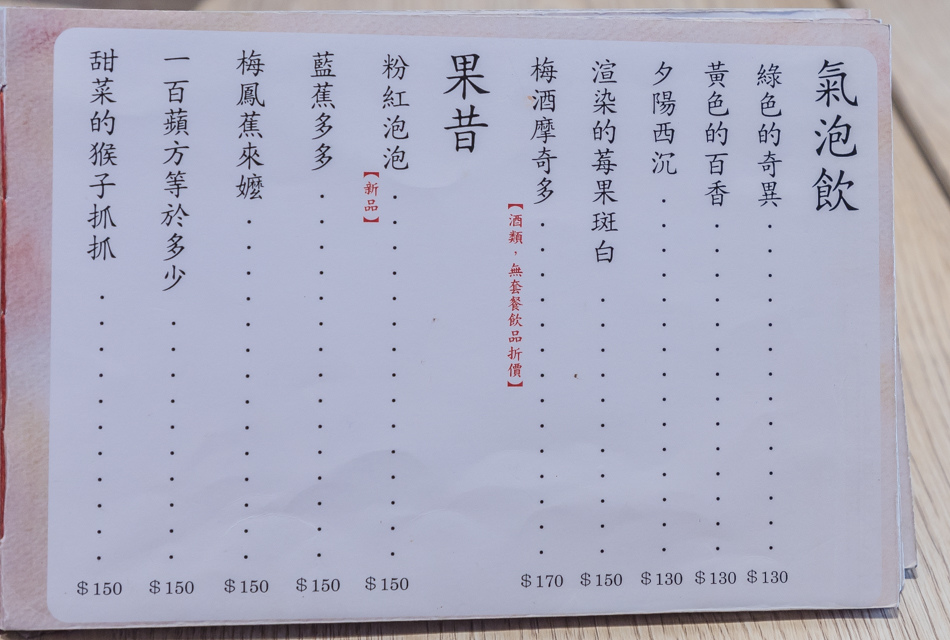 氣泡飲
綠色的奇異 $130
黃色的百香 $130
夕陽西沉 $130
渲染的莓果斑白 $150
梅酒摩奇多 $170
【酒類，無套餐飲品折價】
果昔
粉紅泡泡 $150
【新品】
藍蕉多多 $150
梅鳳蕉來嬤 $150
一百蘋方等於多少 $150
甜菜的猴子抓抓 $150